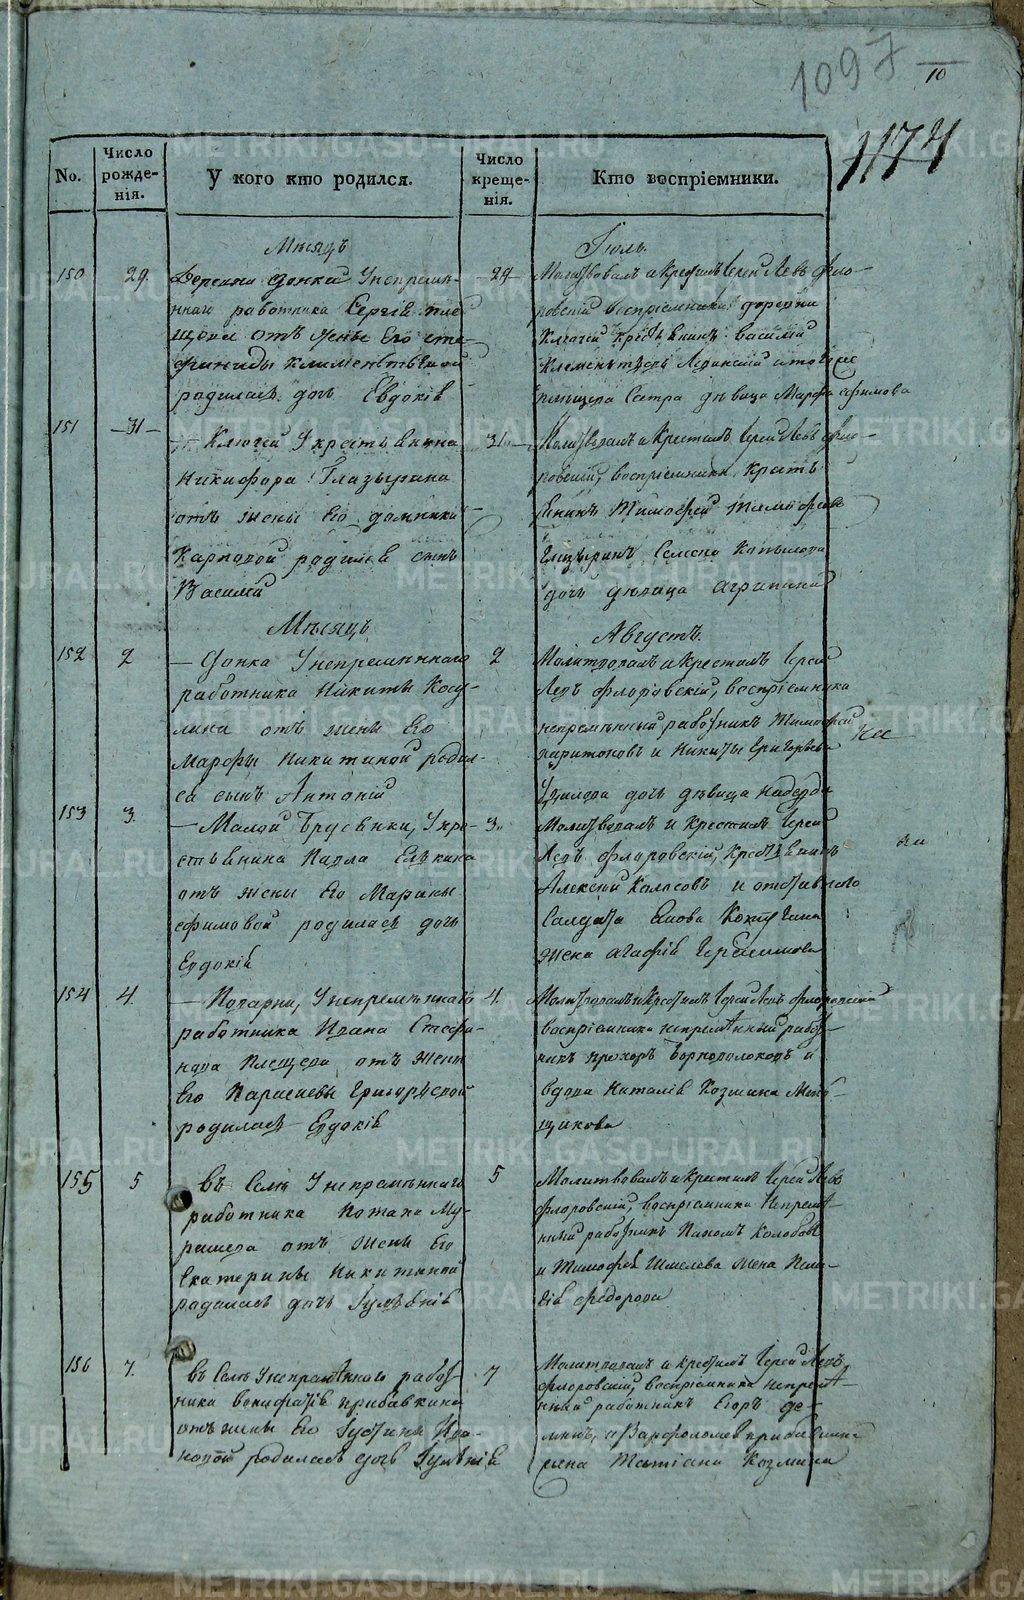 1097
10
1174
No.
Число рожде-нія.
У кого кто родился.
Число креще-нія.
Кто воспріемники.
Мѣсяцъ
Іюль.
150
29.
Деревни Сонки Унепремѣ-
ннаго работника Сергія Пле
щова отъ жены Его
родилась дочь Евдокія
29
Молитвовалъ и Крестилъ Іерей Левъ Фло-
ровскій воспріемники деревни
Ключей Крестьянинъ Василій
сестра дѣвица Марфа Ефимова
151
31
Ключей Укрестьянина
Никифора Глазырина
отъ жены Его Домники
Карповой родился сынъ
Василій
31
Молитвовалъ и Крестилъ Іерей Левъ Фло-
ровскій, воспріемники Кресть
янинъ Тимофей
Семена Копылова
дочь дѣвица Агрипина
Мѣсяцъ
Августъ.
152
2
Сонка Унепремѣннаго
работника Никиты Косу-
лина отъ жены Его
Марфы Никитиной родил-
са сынъ Антоній
2
Молитвовалъ и Крестилъ Іерей
Левъ Флоровскій, воспріемника
непремѣнный работникъ Тимофей
Харитоновъ и Никиты Григорьева
дочь дѣвица Надежда
153
3.
Малой Брусянки, Укре-
стьянина Павла Елькина
отъ жены Его Марины
Ефимовой родилась дочь
Евдокія
3.
Молитвовалъ и Крестилъ Іерей
Левъ Флоровскій, Крестьянинъ
Алексій Колясовъ и отставнаго
Салдата
жена Агафія Герасимова
154
4.
Унепремѣннаго
работника Ивана Стефа-
нова Плещева отъ жены
Его Парасковьи Григорьевой
родилась Евдокія
4.
Молитвовалъ и Крестилъ Іерей Левъ Флоровскій
воспріемники непремѣнный работ-
никъ Прохоръ Черноволоковъ и
вдова Наталія Козмина Мень-
щикова
155
5
въ Селѣ Унепремѣннаго
работника Потапа Му-
рашева отъ жены Его
Екатерины Никитиной
родилась дочь Іуліянія
5
Молитвовалъ и Крестилъ Іерей Левъ
Флоровскій, воспріемники Непремѣ-
нный работникъ Пахомъ Колобовъ
и Тимофея Шмелева жена Пела-
гія Федорова
156
7.
въ Селѣ Унепремѣннаго работ-
ника Вонифатія Прибавкина
отъ жены Его Іустины Ива-
новой родилась дочь Іуліянія
7
Молитвовалъ и Крестилъ Іерей Левъ
Флоровскій, воспріемники непремѣ-
нный работникъ Егоръ Де-
минъ, и Варфоломея Прибавкина
жена Татіана Козмина
METRIKI.GASO-URAL.RU